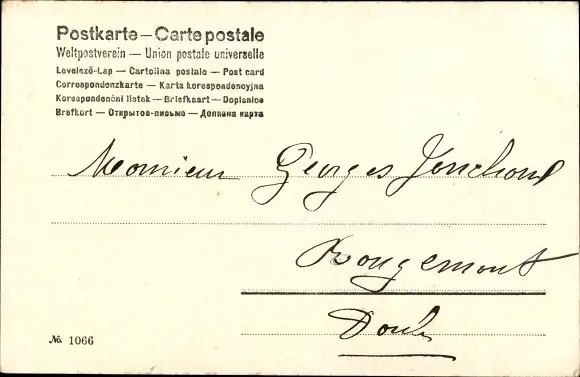 Postkarte — Carte postale
Weltpostverein — Union postale universelle
Levelező-Lap — Cartolina postale — Post card
Correspondenzkarte — Karta korespondencyjna
Korespondenční lístek — Briefkaart — Dopisnice
Brefkort — Открытое-письмо — Дописна карта
Monsieur Georges
Rougemont
Doubs
No. 1066